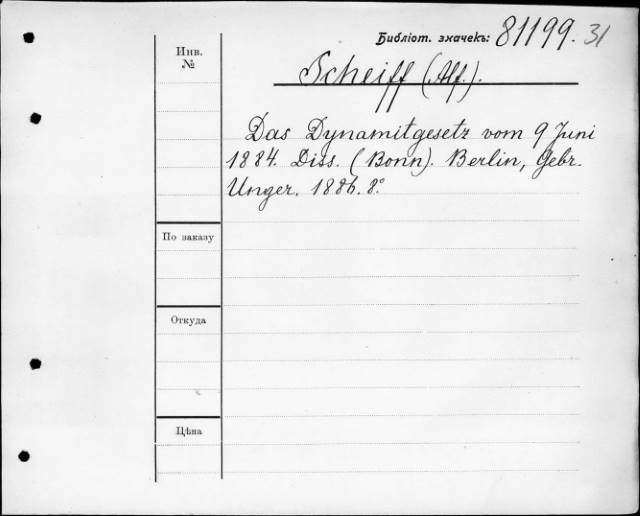 Библіот. значекъ: 81199. 31
Инв. №
Scheiff (Alf.).
Das Dynamitgesetz vom 9 Juni
1884. Diss. (Bonn). Berlin, Gebr.
Unger. 1886. 8.°
По заказу
Откуда
Цѣна